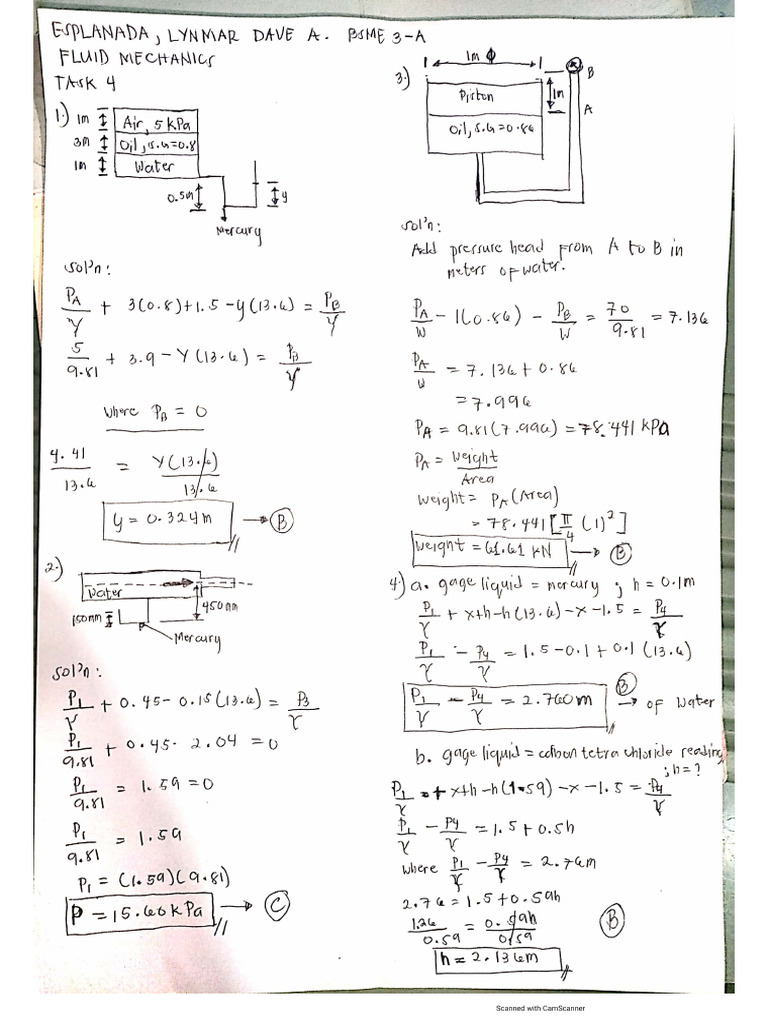 ESPLANADA, LYNMAR DAVE A. BSME 3-A
FLUID MECHANICS
TASK 4
1.)
1m
Air, 5 kPa
3m
Oil, s.G=0.8
1m
Water
0.5m
y
Mercury
sol'n:
PA/γ + 3(0.8)+1.5-y(13.6) = PB/γ
5/9.81 + 3.9-Y(13.6) = PB/γ
where PB = 0
4.41/13.6 = Y(13.6)/13.6
y = 0.324m → B
2.)
Water
450mm
150mm
Mercury
sol'n:
P1/γ + 0.45-0.15(13.6) = P3/γ
P1/9.81 + 0.45-2.04 = 0
P1/9.81 = 1.59 = 0
P1/9.81 = 1.59
P1 = (1.59)(9.81)
P = 15.60 kPa → C
3.)
1m Φ
B
Piston
1m
A
Oil, s.G=0.86
sol'n:
Add pressure head from A to B in
meters of water.
PA/W - 1(0.86) - PB/W = 70/9.81 = 7.136
PA/W = 7.136 + 0.86
= 7.996
PA = 9.81(7.996) = 78.441 kPa
PA = Weight/Area
weight = PA(Area)
= 78.441[π/4 (1)²]
Weight = 61.61 kN → B
4.) a. gage liquid = mercury ; h = 0.1m
P1/γ + x+h-h(13.6)-x-1.5 = P4/γ
P1/γ - P4/γ = 1.5-0.1+0.1(13.6)
P1/γ - P4/γ = 2.760m → of water
B
b. gage liquid = carbon tetra chloride reading
; h=?
P1/γ + x+h-h(1.59)-x-1.5 = P4/γ
P1/γ - P4/γ = 1.5+0.5h
where P1/γ - P4/γ = 2.76m
2.76 = 1.5+0.59h
1.26/0.59 = 0.59h/0.59
B
h = 2.136m
Scanned with CamScanner